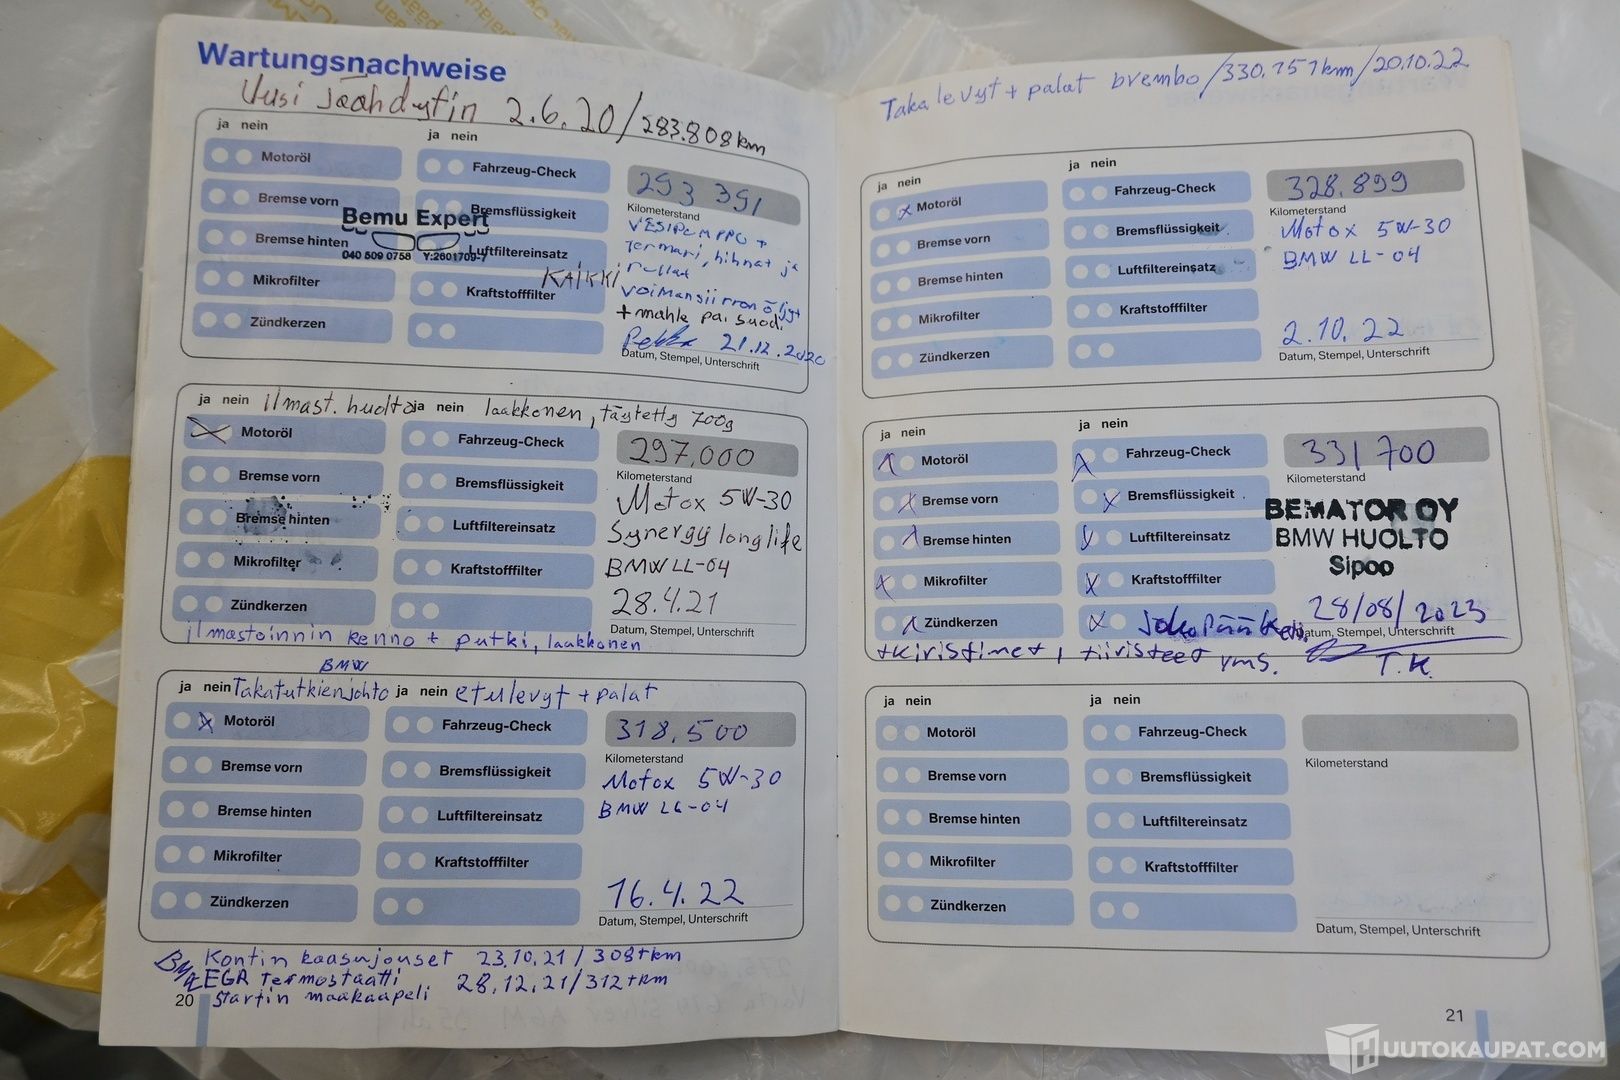 Wartungsnachweise
Uusi Jäähdytin 2.6.20/283.808km
ja nein
ja nein
Motoröl
Fahrzeug-Check
293 391
Kilometerstand
Bremse vorn
Bremsflüssigkeit
Bemu Expert
040 509 0758 Y:2601709-7
VESIPUMPPU +
Termari, hihnat ja
rullat
Bremse hinten
Luftfiltereinsatz
KAIKKI
voimansiirron öljyt
Mikrofilter
Kraftstofffilter
+ mahle pa. suod.
Zündkerzen
Pekka 21.12.2020
Datum, Stempel, Unterschrift
ja nein ilmast. huolto ja nein laakkonen, täytetty 700g
Motoröl
Fahrzeug-Check
297.000
Kilometerstand
Bremse vorn
Bremsflüssigkeit
Motox 5W-30
Bremse hinten
Luftfiltereinsatz
Synergy longlife
Mikrofilter
Kraftstofffilter
BMW LL-04
28.4.21
Zündkerzen
Datum, Stempel, Unterschrift
ilmastoinnin kenno + putki, laakkonen
BMW
ja nein Takatutkienjohto ja nein etulevyt + palat
Motoröl
Fahrzeug-Check
318.500
Kilometerstand
Bremse vorn
Bremsflüssigkeit
Motox 5W-30
BMW LL-04
Bremse hinten
Luftfiltereinsatz
Mikrofilter
Kraftstofffilter
16.4.22
Zündkerzen
Datum, Stempel, Unterschrift
Kontin kaasujouset 23.10.21/308tkm
BMW EGR Termostaatti 28.12.21/312tkm
startin maakaapeli
20
Takalevyt + palat brembo/330.151km/20.10.22
ja nein
ja nein
Motoröl
Fahrzeug-Check
328.899
Kilometerstand
Bremse vorn
Bremsflüssigkeit
Motox 5W-30
Bremse hinten
Luftfiltereinsatz
BMW LL-04
Mikrofilter
Kraftstofffilter
2.10.22
Zündkerzen
Datum, Stempel, Unterschrift
ja nein
ja nein
Motoröl
Fahrzeug-Check
331 700
Kilometerstand
Bremse vorn
Bremsflüssigkeit
BEMATOR OY
Bremse hinten
Luftfiltereinsatz
BMW HUOLTO
Sipoo
Mikrofilter
Kraftstofffilter
28/08/2023
Zündkerzen
Jakopääketju
Datum, Stempel, Unterschrift
+kiristimet, tiivisteet yms.
T.K.
ja nein
ja nein
Motoröl
Fahrzeug-Check
Kilometerstand
Bremse vorn
Bremsflüssigkeit
Bremse hinten
Luftfiltereinsatz
Mikrofilter
Kraftstofffilter
Zündkerzen
Datum, Stempel, Unterschrift
21
HUUTOKAUPAT.COM